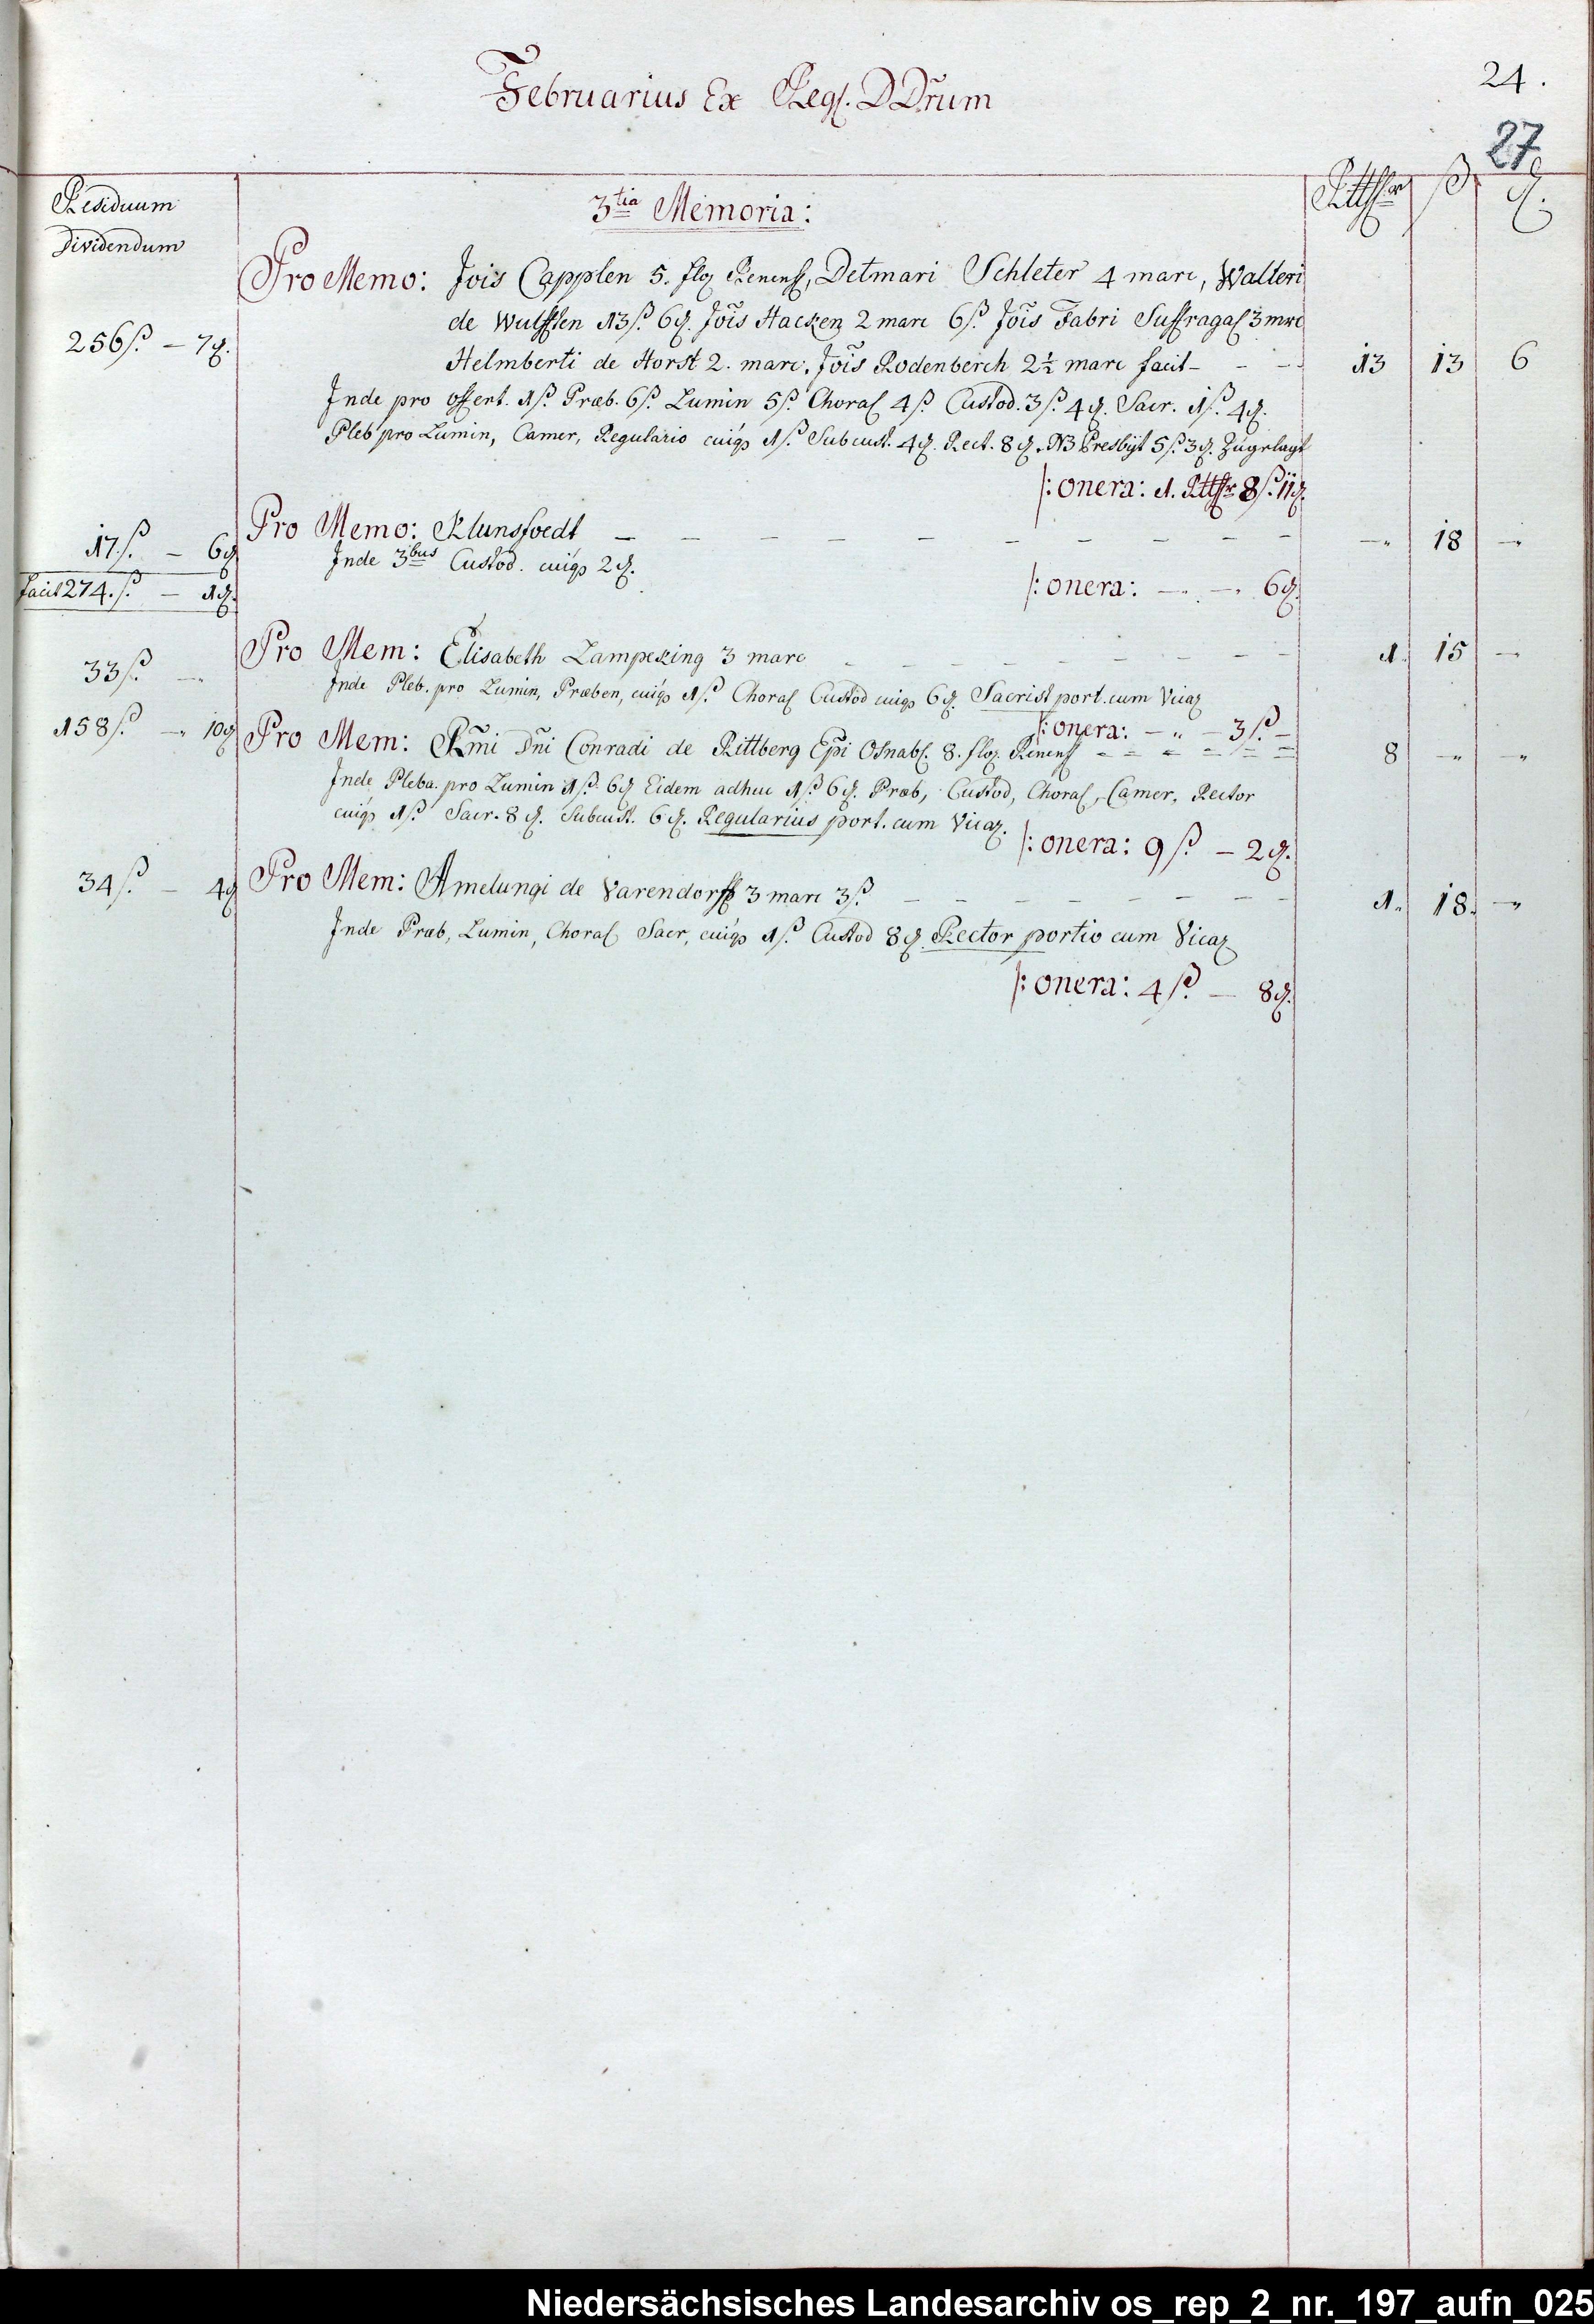 24.
Februarius Ex Regſ. DDr̃um
27
Residuum
Dividendum
Rtthlr ß ₰.
3tia Memoria:
Pro Memo: Jois Capplen 5. floꝝ Renenſ, Detmari Schleter 4 marc, Walteri
de Wulfften 13 ß. 6 ₰. Jõis Hacken 2 marc 6 ß. Jõis Fabri Suffragaſ 3 mrc
256 ß. – 7 ₰.
Helmberti de Horst 2. marc. Jõis Rodenberch 2½ marc facit – – – 13 13 6
Inde pro offert. 1 ß. Præb. 6 ß. Lumin 5 ß. Choraſ 4 ß. Custod. 3 ß. 4 ₰. Sacr. 1 ß. 4 ₰.
Pleb pro Lumin, Camer, Regulario cuiqȝ 1 ß. Subcust. 4 ₰. Rect. 8 ₰. NB Presbijt 5 ß. 3 ₰. Zugelagt
/: onera: 1. Rtthlr 8 ß. 11 ₰.
17 ß. – 6 ₰
Pro Memo: Klunsfoedt – – – – – – – – – – –" 18 –"
Inde 3bus Custod. cuiqȝ 2 ₰.
facit 274. ß. – 1 ₰.
/: onera: –" –" 6 ₰.
Pro Mem: Elisabeth Lampeking 3 marc – – – – – – – 1. 15 –"
33 ß. –"
Inde Pleb. pro Lumin, Præben, cuiqȝ 1 ß. Choraſ Custod cuiqȝ 6 ₰. Sacrist port. cum Vicaꝝ
/: onera: –" – 3 ß. –
158 ß. –" 10 ₰
Pro Mem: Rm̃i Dñi Conradi de Rittberg Epĩ Osnabſ. 8. floꝝ. Renenſ – – – – – – 8 –" –"
Inde Pleba. pro Lumin 1 ß. 6 ₰ Eidem adhuc 1 ß. 6 ₰. Præb, Custod, Choraſ, Camer, Rector
cuiqȝ 1 ß. Sacr. 8 ₰. Subcust. 6 ₰. Regularius port. cum Vicaꝝ.
/: onera: 9 ß. – 2 ₰.
34 ß. – 4 ₰
Pro Mem: Amelungi de Varendorff 3 marc 3 ß. – – – – – – – – 1. 18. –"
Inde Præb, Lumin, Choraſ Sacr, cuiqȝ 1 ß. Custod 8 ₰. Rector portio cum Vicaꝝ
/: onera: 4 ß. – 8 ₰.
Niedersächsisches Landesarchiv os_rep_2_nr._197_aufn_025